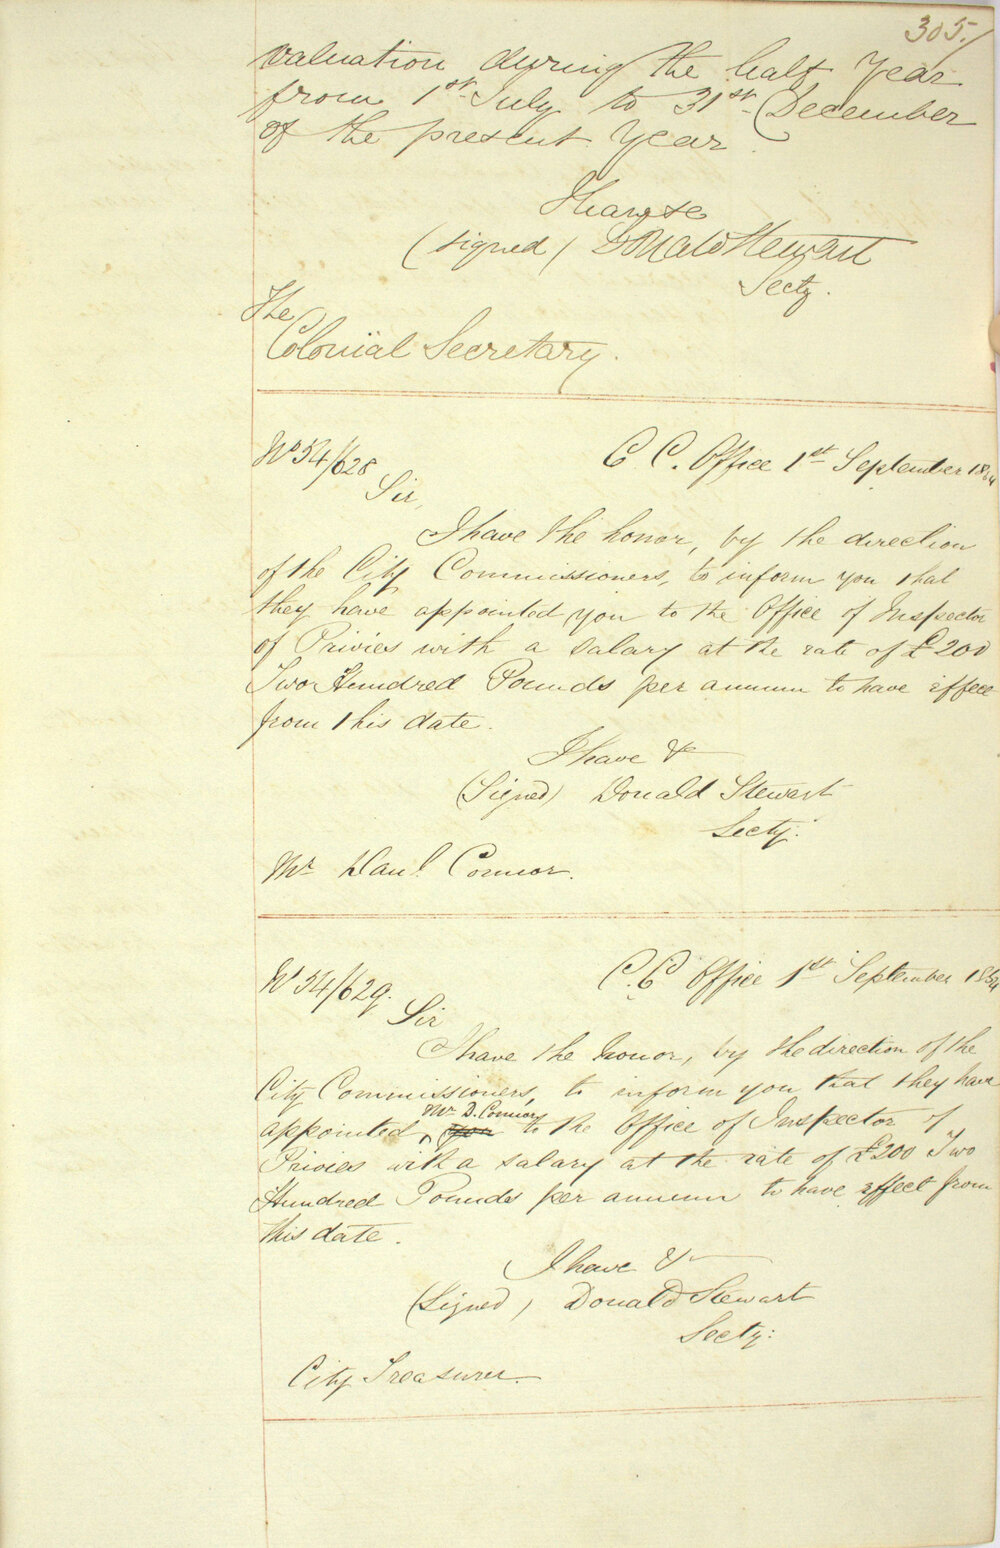 305.
valuation during the half Year
from 1st July to 31st December
of the present Year
I have &c
(signed) Donald Stewart
Secty.
The
Colonial Secretary.
No 54/628
C C. Office 1st September 1854
Sir,
I have the honor, by the direction
of the City Commissioners, to inform you that
they have appointed you to the Office of Inspector
of Privies with a salary at the rate of £200
Two Hundred Pounds per annum to have effect
from this date.
I have &
(Signed) Donald Stewart
Secty:
Mr Danl. Connor.
No 54/629.
C. C Office 1st September 1854
Sir
I have the honor, by the direction of the
City Commissioners, to inform you that they have
Mr D. Connor
appointed you to the Office of Inspector of
Privies with a salary at the rate of £200 Two
Hundred Pounds per annum to have effect from
this date.
I have &
(Signed) Donald Stewart
Secty:
City Treasurer.